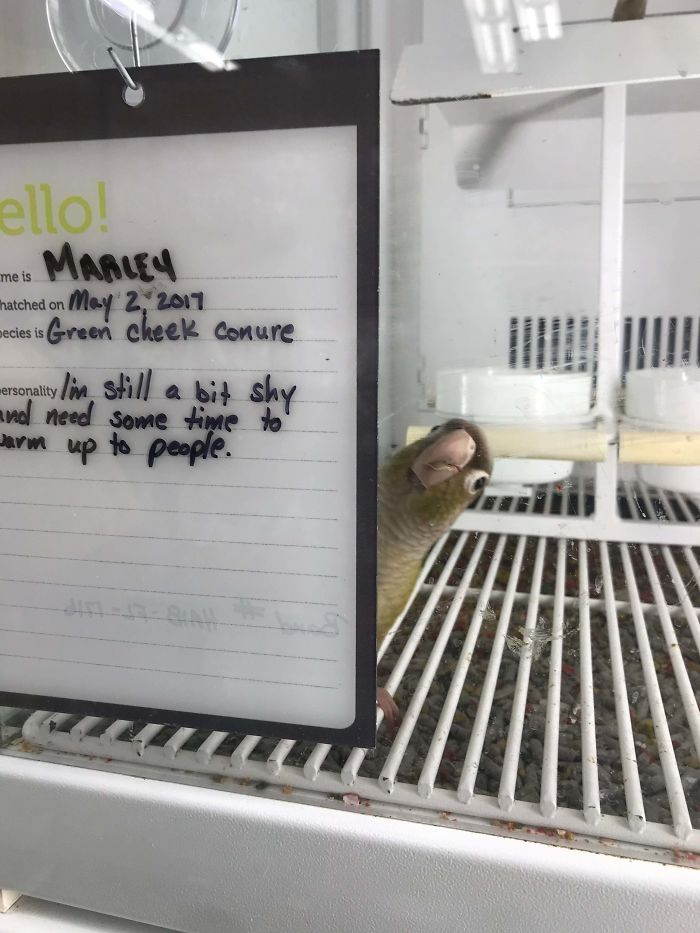 ello!
me is MARLEY
hatched on May 2, 2017
ecies is Green cheek conure
ersonality I'm still a bit shy
and need some time to
warm up to people.
Band #